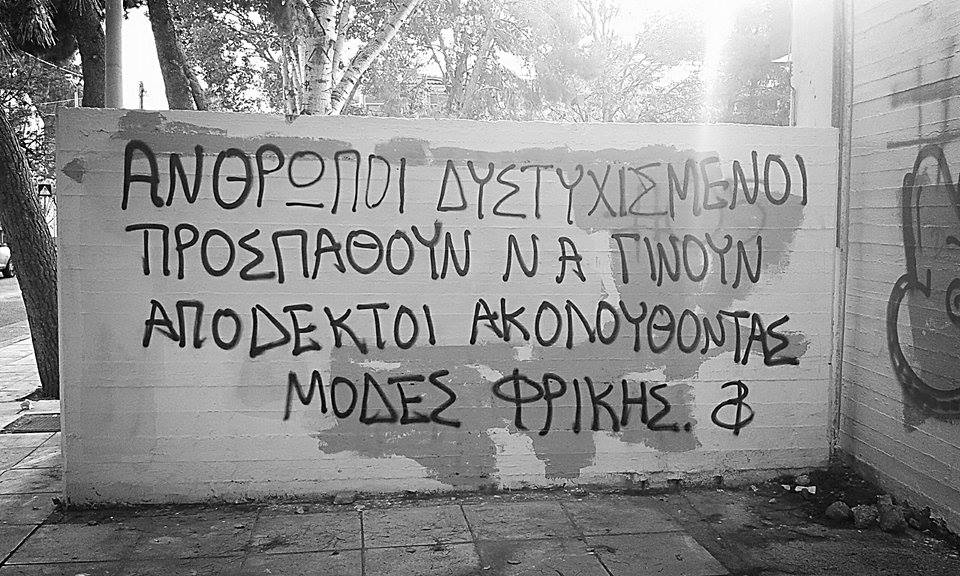 ΑΝΘΡΩΠΟΙ ΔΥΣΤΥΧΙΣΜΕΝΟΙ
ΠΡΟΣΠΑΘΟΥΝ ΝΑ ΓΙΝΟΥΝ
ΑΠΟΔΕΚΤΟΙ ΑΚΟΛΟΥΘΟΝΤΑΣ
ΜΟΔΕΣ ΦΡΙΚΗΣ.